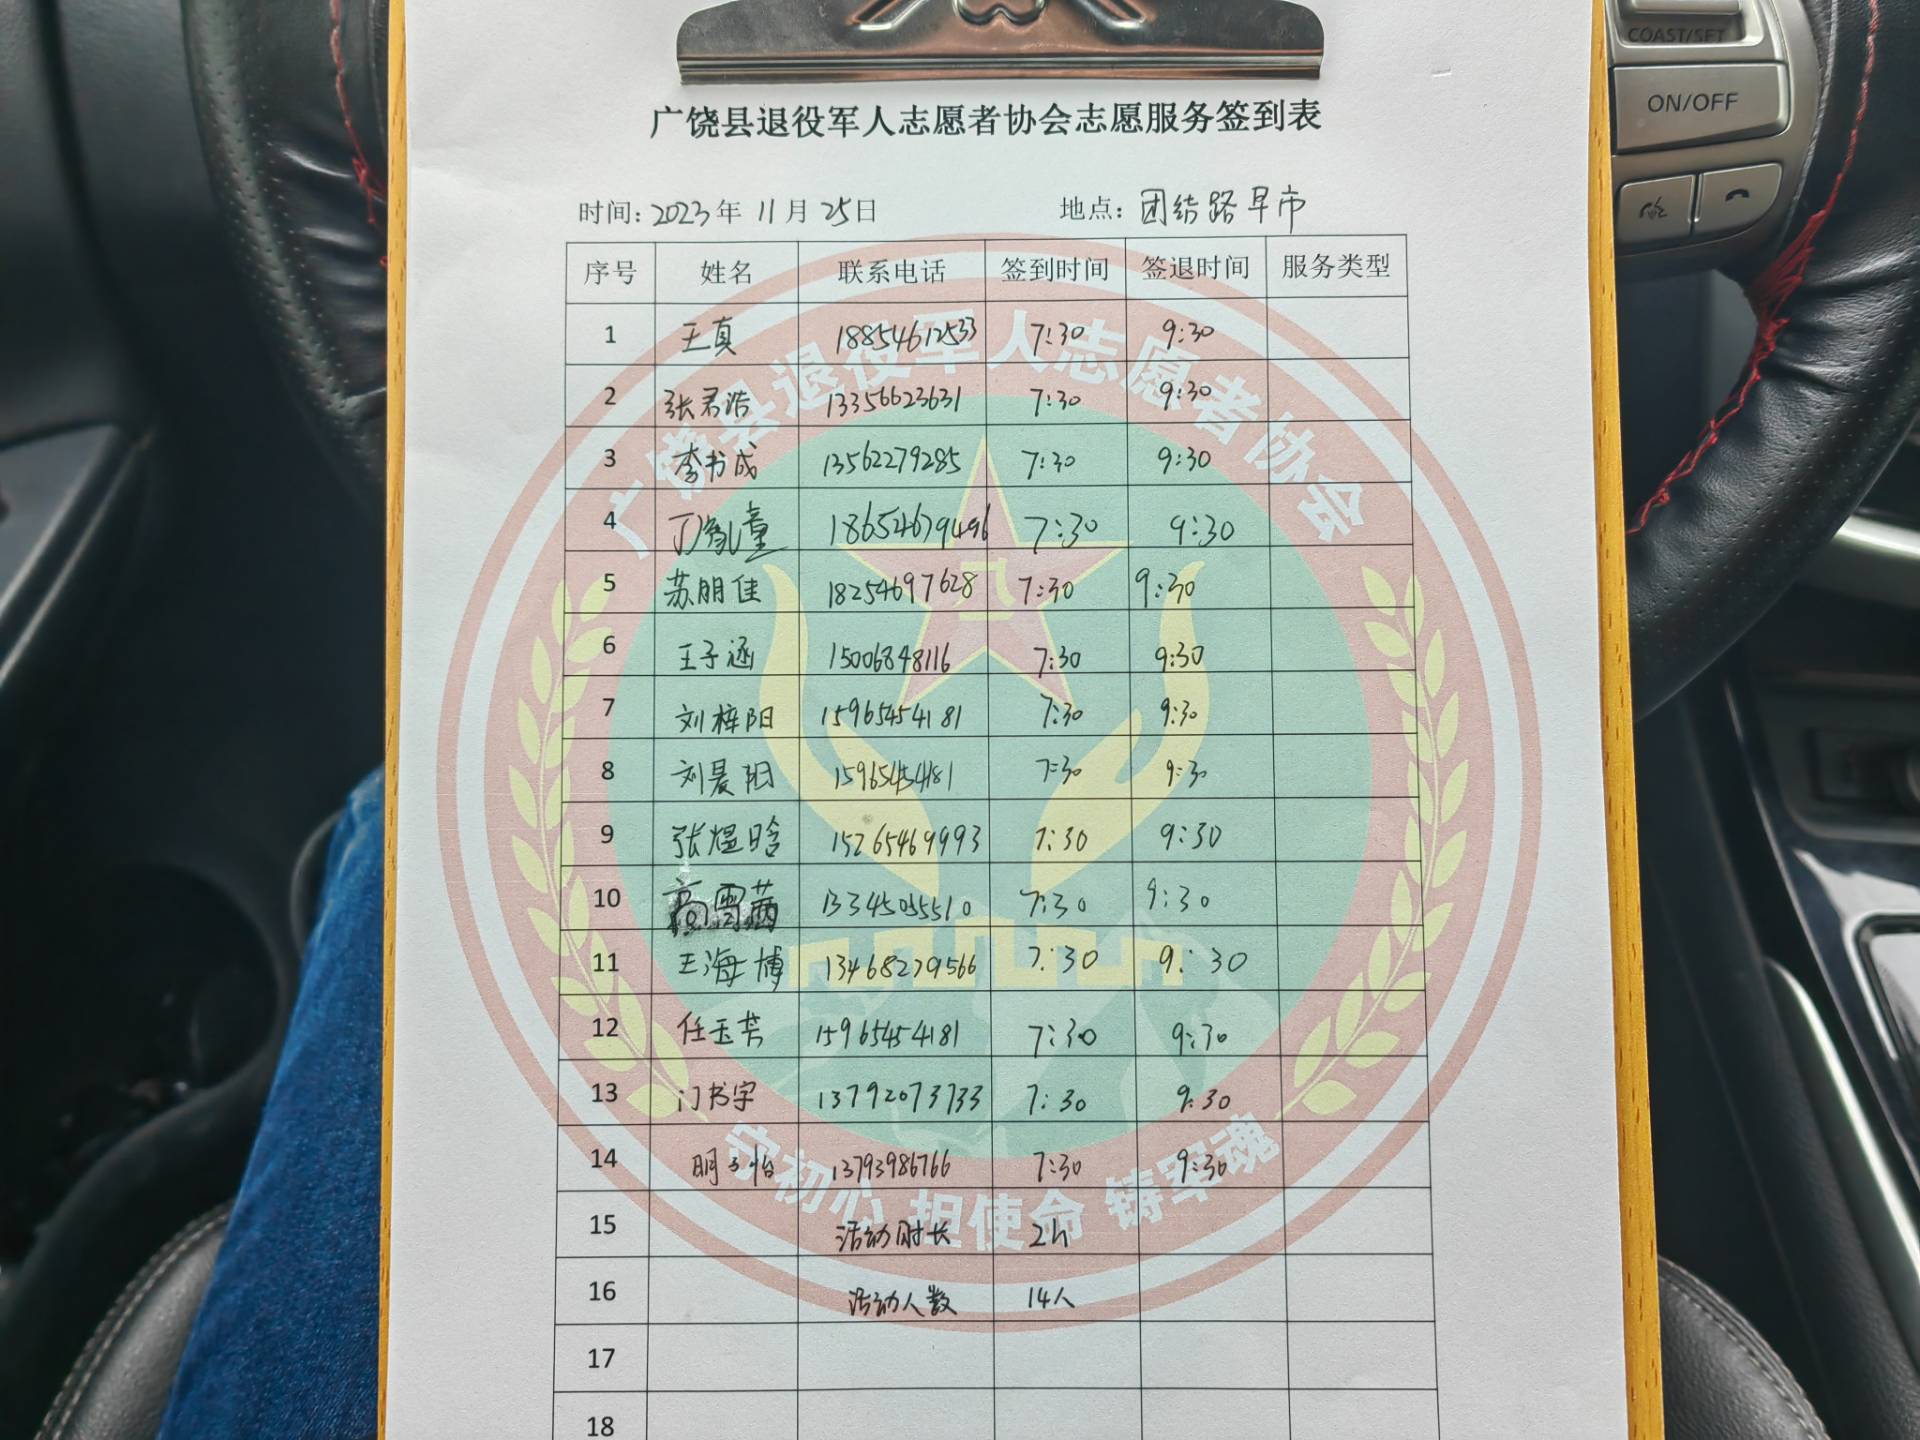 COAST/SET
ON/OFF
广饶县退役军人志愿者协会志愿服务签到表
时间: 2023年 11月 25日 地点: 团结路早市
序号 姓名 联系电话 签到时间 签退时间 服务类型
1 王真 18854612533 7:30 9:30
2 张君浩 13356623631 7:30 9:30
3 李书成 13562279285 7:30 9:30
4 丁胤童 18654679496 7:30 9:30
5 苏朋佳 18254697628 7:30 9:30
6 王子涵 15006848116 7:30 9:30
7 刘梓阳 15965454181 7:30 9:30
8 刘晨阳 15965454181 7:30 9:30
9 张煜晗 15265469993 7:30 9:30
10 高雪 13345055510 7:30 9:30
11 王海博 13468279566 7:30 9:30
12 任玉芳 15965454181 7:30 9:30
13 门书宇 13792073733 7:30 9:30
14 明子怡 13793986766 7:30 9:30
15 活动时长 2h
16 活动人数 14人
17
18
广饶县退役军人志愿者协会
守初心 担使命 铸军魂